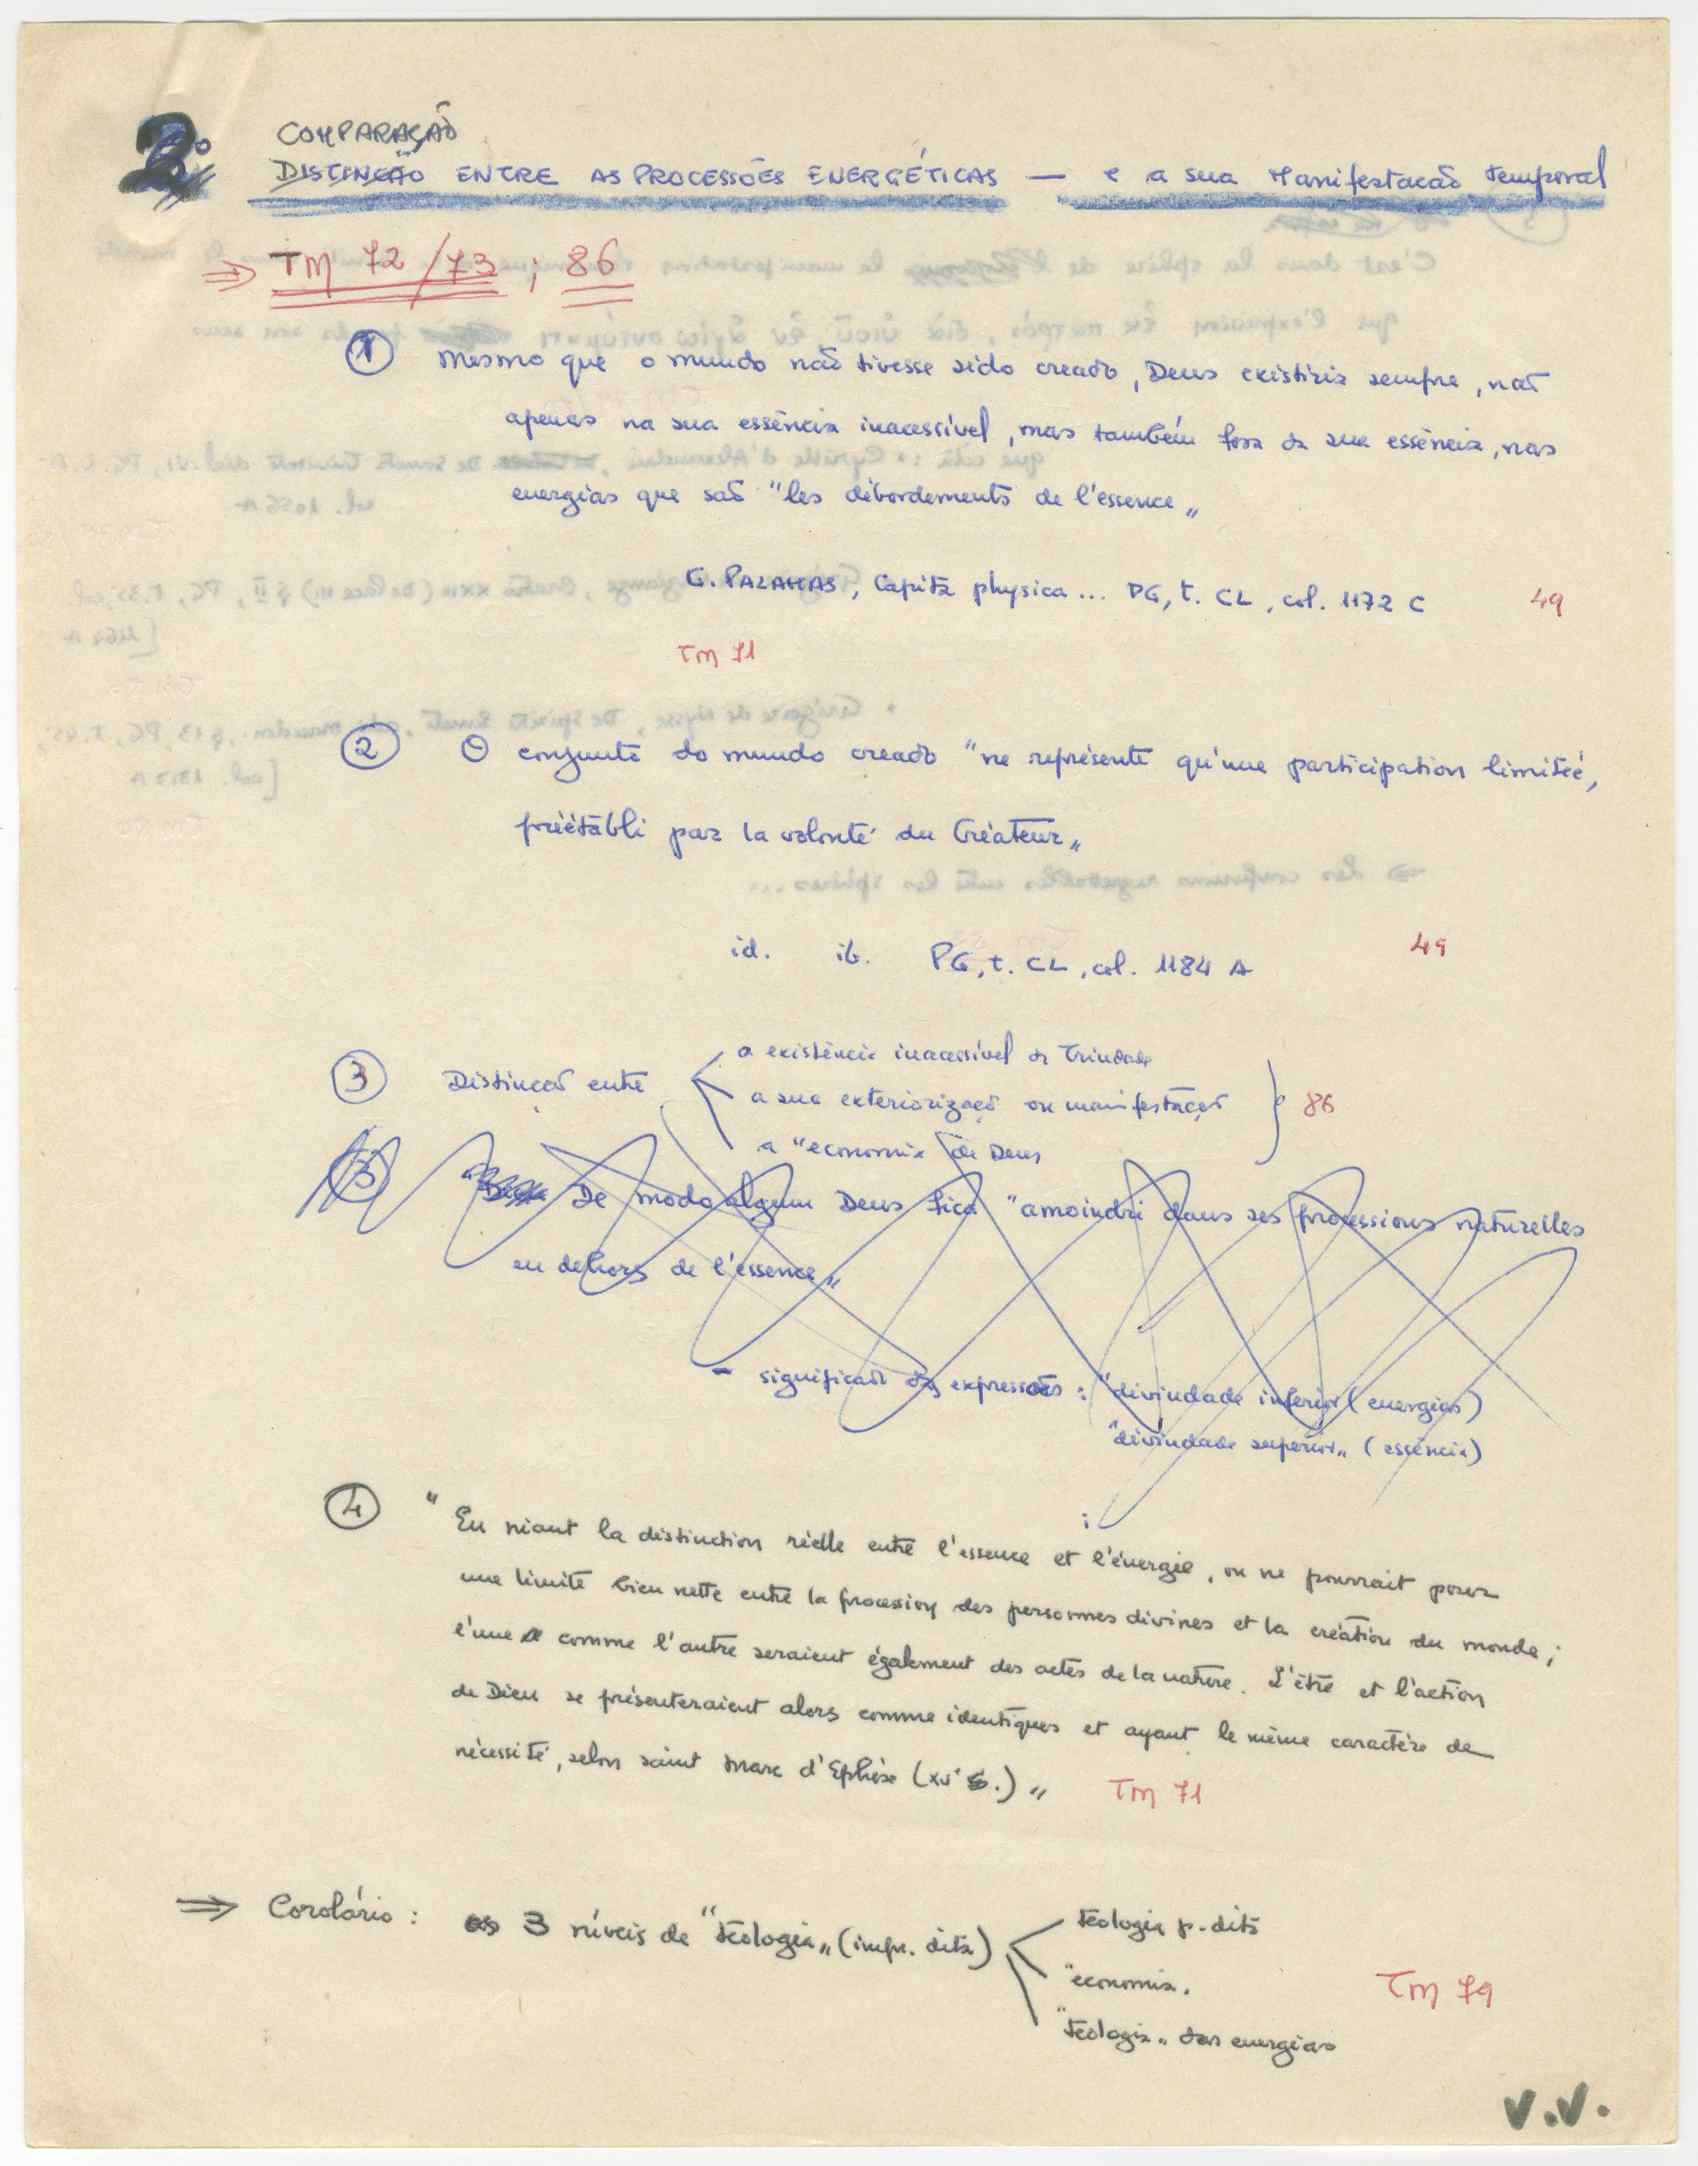 2º
COMPARAÇÃO
DISTINÇÃO ENTRE AS PROCESSÕES ENERGÉTICAS — e a sua Manifestação temporal
⇒ TM 72/73 ; 86
1 Mesmo que o mundo não tivesse sido creado, Deus existiria sempre, não
apenas na sua essência inacessível, mas também fora da sua essência, nas
energias que são "les débordements de l'essence"
G. PALAMAS, Capita physica... PG, t. CL, col. 1172 C 49
TM 71
2 O conjunto do mundo creado "ne représente qu'une participation limitée,
préétabli par la volonté du Créateur"
id. ib. PG, t. CL, col. 1184 A 49
3 Distinção entre
a existência inacessível da Trindade
a sua exteriorização ou manifestação
a "economia de Deus
86
3 De modo algum Deus fica "amoindri dans ses processions naturelles
en dehors de l'essence"
- significado das expressões : "divindade inferior (energias)
"divindade superior" (essência)
4 " En niant la distinction réelle entre l'essence et l'énergie, on ne pourrait poser
une limite bien nette entre la procession des personnes divines et la création du monde;
l'une comme l'autre seraient également des actes de la nature. L'être et l'action
de Dieu se présenteraient alors comme identiques et ayant le même caractère de
nécessité, selon saint Marc d'Ephèse (XVe S.)" TM 71
⇒ Corolário : os 3 níveis de "teologia" (impr. dita)
teologia p. dita
"economia"
"teologia" das energias
TM 79
V.V.